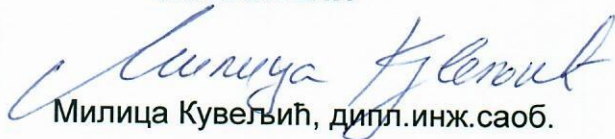 Милица Кувељић
Милица Кувељић, дипл.инж.саоб.